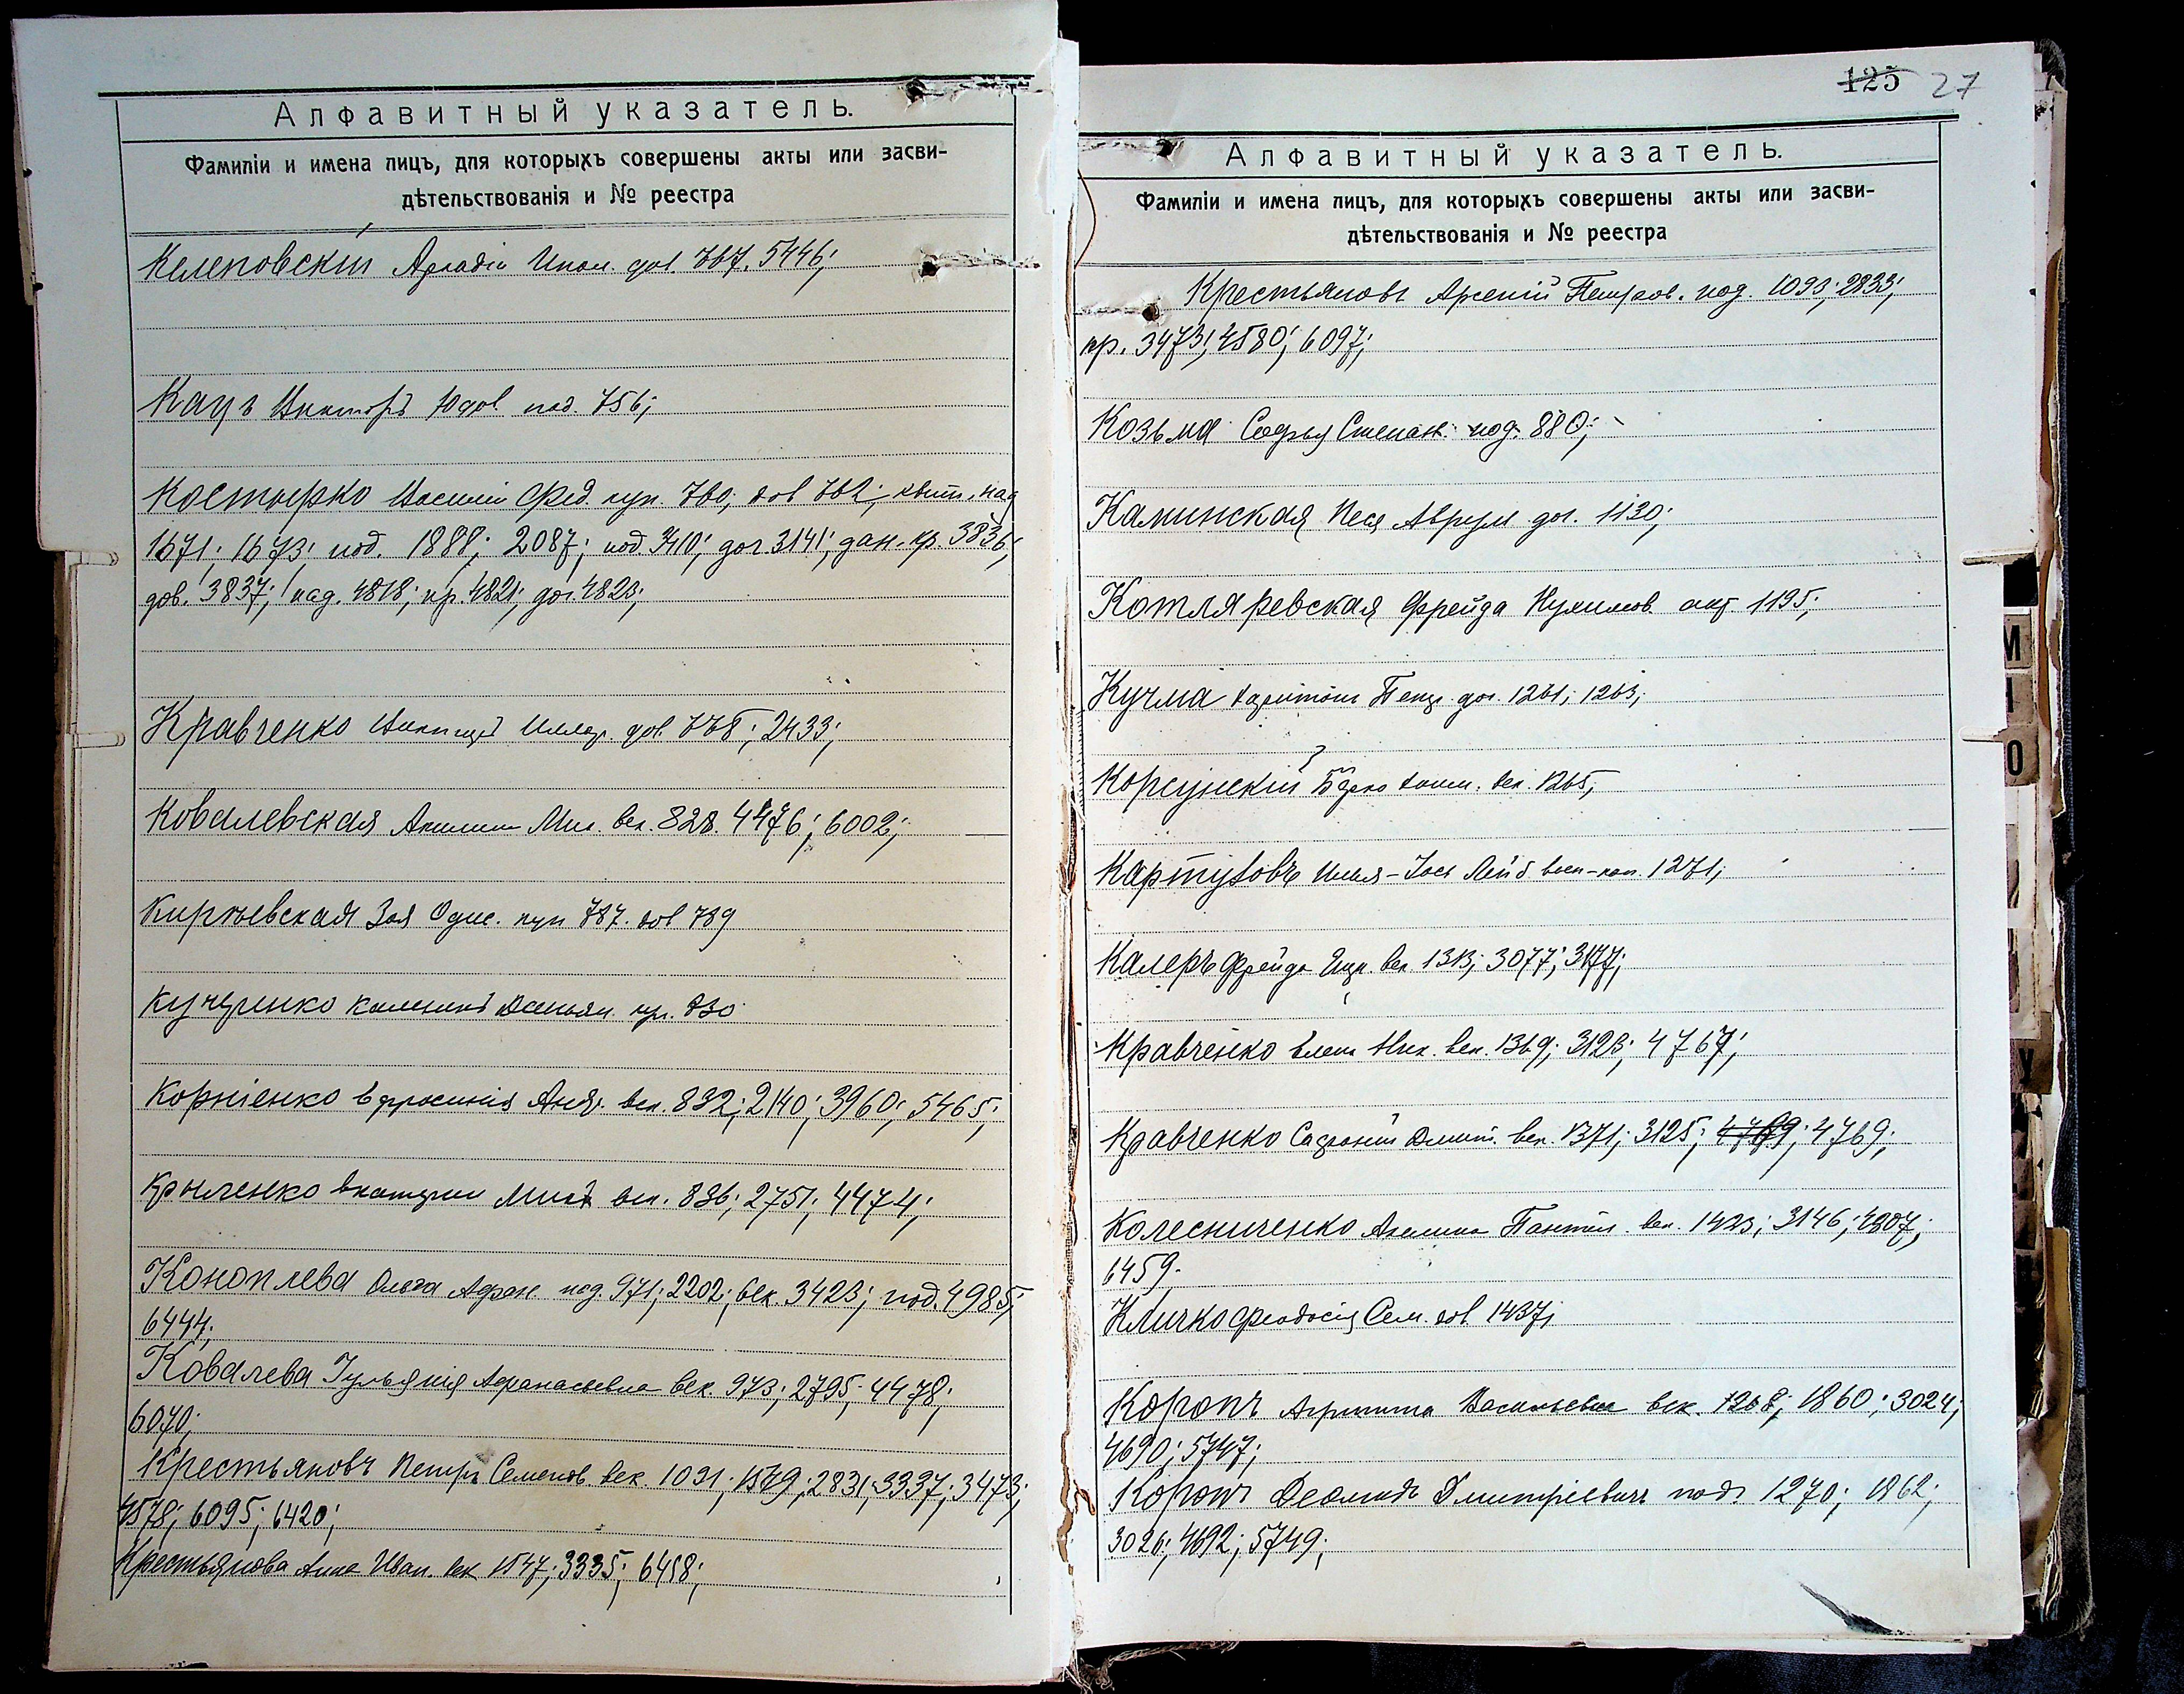 Алфавитный указатель.
Фамиліи и имена лицъ, для которыхъ совершены акты или засви-
дѣтельствованія и № реестра
Келеповскій Аркадій Ипол. дов. 767. 5446;
Кацъ Викторъ Юдов. под. 756;
Костырко Василій Фед. куп. 760; дов 762; квит. над
1671; 1673; под. 1888; 2087; под 3410; дог 3141; дан. кр. 3836;
дов. 3837; над. 4818; кр. 4821; дог. 4823;
Кравченко Иллар. дов. 778; 2433;
Ковалевская Акилина Мих. век. 828. 4476; 6002;
Кирьевская Зоя Одис. куп 787. дов 789
Кучеренко Калениkъ Демьян. кр. 830
Корніенко Ефросинія Андр. век. 832; 2140; 3960; 5465;
Крыленко Екатерина Мих. век. 836; 2751; 4474;
Коноплева Ольга Афан. под. 971; 2202; век. 3423; под. 4985;
6444;
Ковалева Іульянія Афанасьевна век. 973; 2795; 4478;
6070;
Крестьяновъ Петръ Семенов. век. 1091; 1549; 2831; 3337; 3473;
4578; 6095; 6420;
Крестьянова Анна Иван. век 1547; 3335; 6418;
125 27
Алфавитный указатель.
Фамиліи и имена лицъ, для которыхъ совершены акты или засви-
дѣтельствованія и № реестра
Крестьяновъ Арсеній Петров. под. 1093; 2833;
кр. 3473; 4580; 6097;
Козьма Софья Степан. под. 880;
Каминская Песя Аврум. дог. 1130;
Котляревская Фрейда акт 1195;
Кучма Харитонъ Петр. дог. 1261; 1263;
Корсунскій век. 1265;
Картужовъ Илья-Іось Лейб 1271;
Калеръ Фрейда Ицк. век. 1313; 3077; 3177;
Кравченко Елена Ник. век. 1369; 3123; 4767;
Кравченко Софроній Дмит. век. 1371; 3125; 4769; 4769;
Колесниченко Акилина Пантел. век. 1423; 3146; 4807;
6459.
Кличко Феодосія Сем. дов 1437;
Коропъ Агрипина Васильевна век. 1268; 1860; 3024;
4690; 5747;
Коропъ Деомидъ Дмитріевичъ под. 1270; 1862;
3026; 4692; 5749;
М
О
У